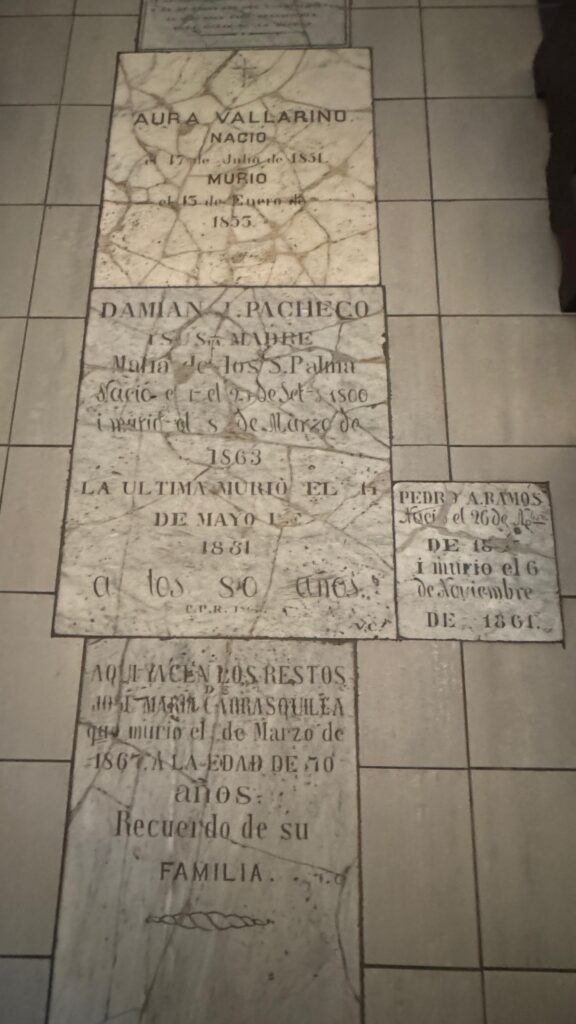 AURA VALLARINO.
NACIO
el 17 de Julio de 1851.
MURIO
el 15 de Enero de
1853.
DAMIAN J. PACHECO
I SU Sa MADRE
Maria de los S. Palma
Nació el de Set. 1800
i murió el 8 de Marzo de
1863
LA ULTIMA MURIÒ EL
DE MAYO
1851
a los 80 años.
C.P.R.
V.C.
PEDRO A. RAMOS
Nació el 26 de
DE
i murio el 6
de Noviembre
DE 1861.
AQUI YACEN LOS RESTOS
DE
JOSE MARIA CARRASQUILLA
que murió el de Marzo de
1867. A LA EDAD DE 70
años.
Recuerdo de su
FAMILIA.